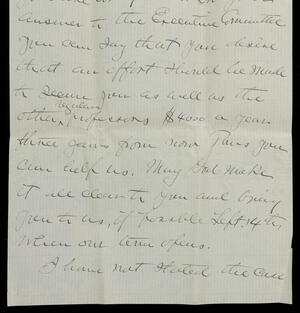 answer to the Executive Committee
you can say that you desire
that an effort should be made
to secure you as well as the
regular
other professors $4000 a year
three years from now. Thus you
can help us. May God make
it all clear to you and bring
you to us, if possible Sept. 14th,
when our term opens.
I have not stated the case